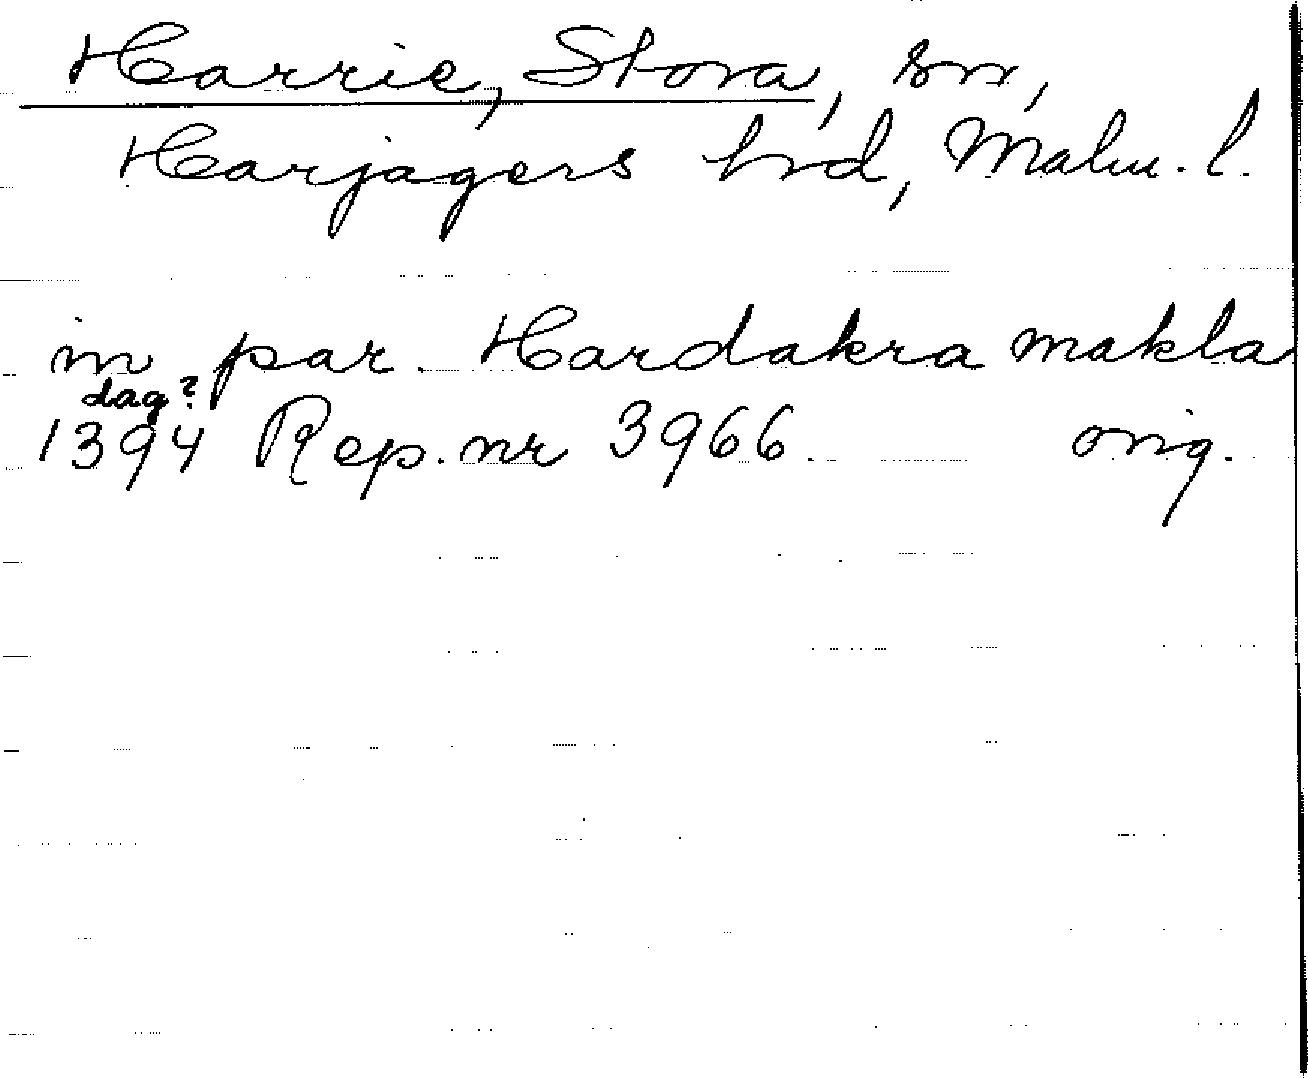 Harrie, Stora, sn,
Harjagers hrd, Malm. l.
in par. Hardakra makla
dag?
1394 Rep. nr 3966. orig.